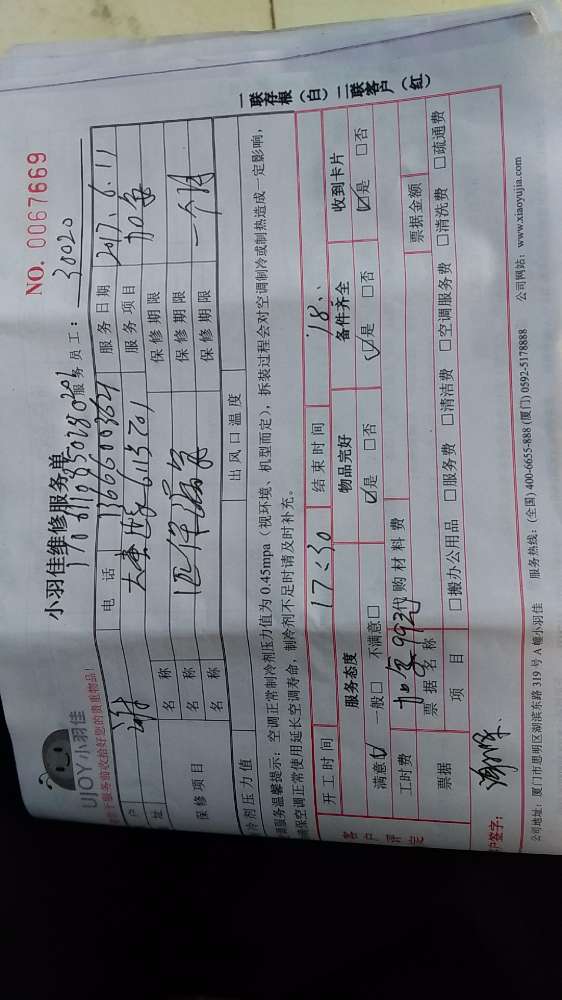 UJOY小羽佳
小羽佳维修服务单
NO. 0067669
服务员工： 30020
服务前收拾好您的贵重物品！
户 谢 电 话 13666003664 服务日期 2017.6.11
址 服务项目 加氟
名 称 保修期限
保修项目 名 称 保修期限 一个月
名 称 保修期限
冷剂压力值 出风口温度
调服务温馨提示：空调正常制冷剂压力值为 0.45mpa（视环境、机型而定），拆装过程会对空调制冷或制热造成一定影响，
确保空调正常使用延长空调寿命，制冷剂不足时请及时补充。
一联存根（白）二联客户（红）
开工时间 17:30 结束时间 18:
客户评定 服务态度 物品完好 备件齐全 收到卡片
满意☑ 一般□ 不满意□ ☑是 □否 ☑是 □否 ☑是 □否
工时费 加氟99元 代购材料费
票据 票据名称 票据金额
项 目 □搬办公用品 □服务费 □清洁费 □空调服务费 □清洗费 □疏通费
户签字：
公司地址：厦门市思明区湖滨东路 319 号 A 幢小羽佳 服务热线：(全国) 400-6655-888 (厦门) 0592-5178888 公司网站：www.xiaoyujia.com